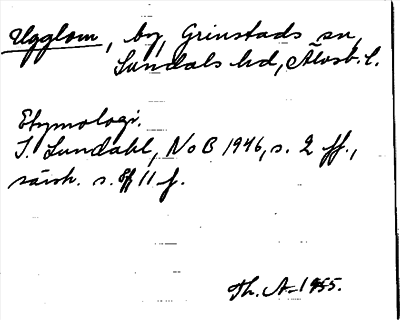 Ugglom, by, Grinstads sn,
Sundals hd, Älvsb. l.
Etymologi.
I. Lundahl, NoB 1946, s. 2 ff.,
särsk. s. 11 f.
Th. A-1955.